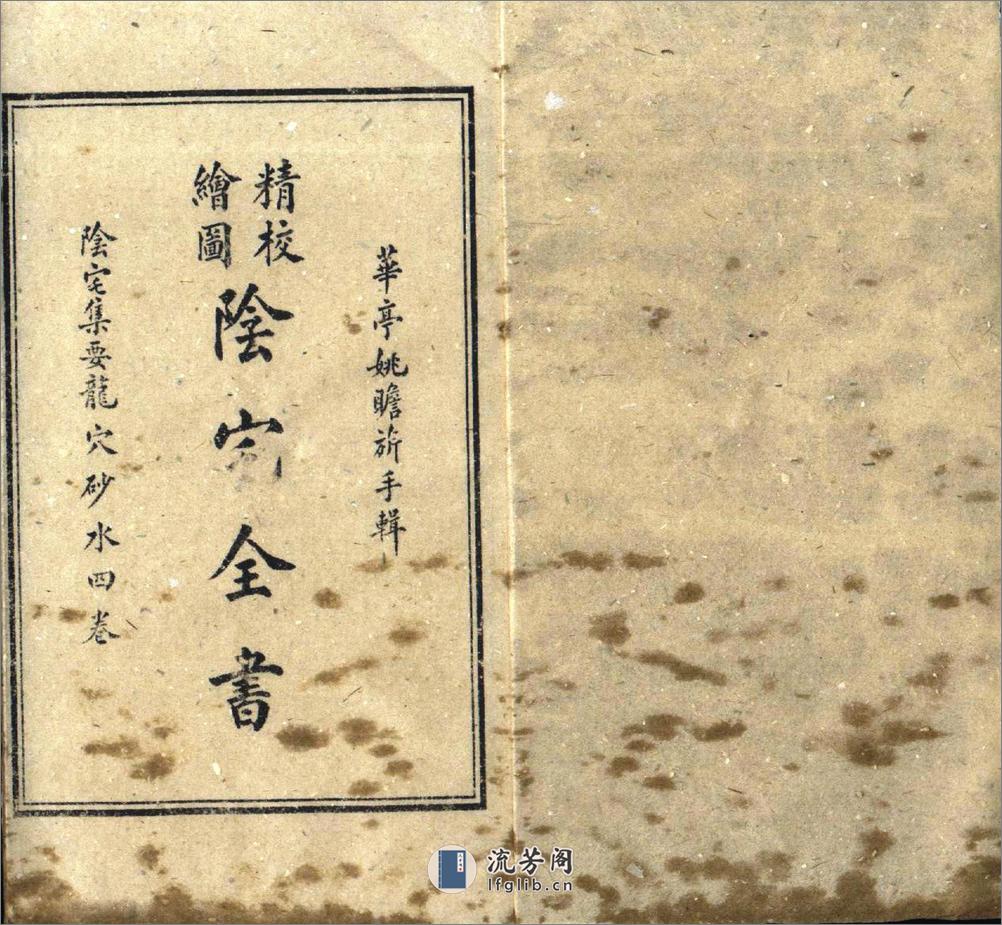 華亭姚瞻旂手輯
精校
繪圖
陰宅全書
陰宅集要龍穴砂水四卷
流芳阁
lfglib.cn